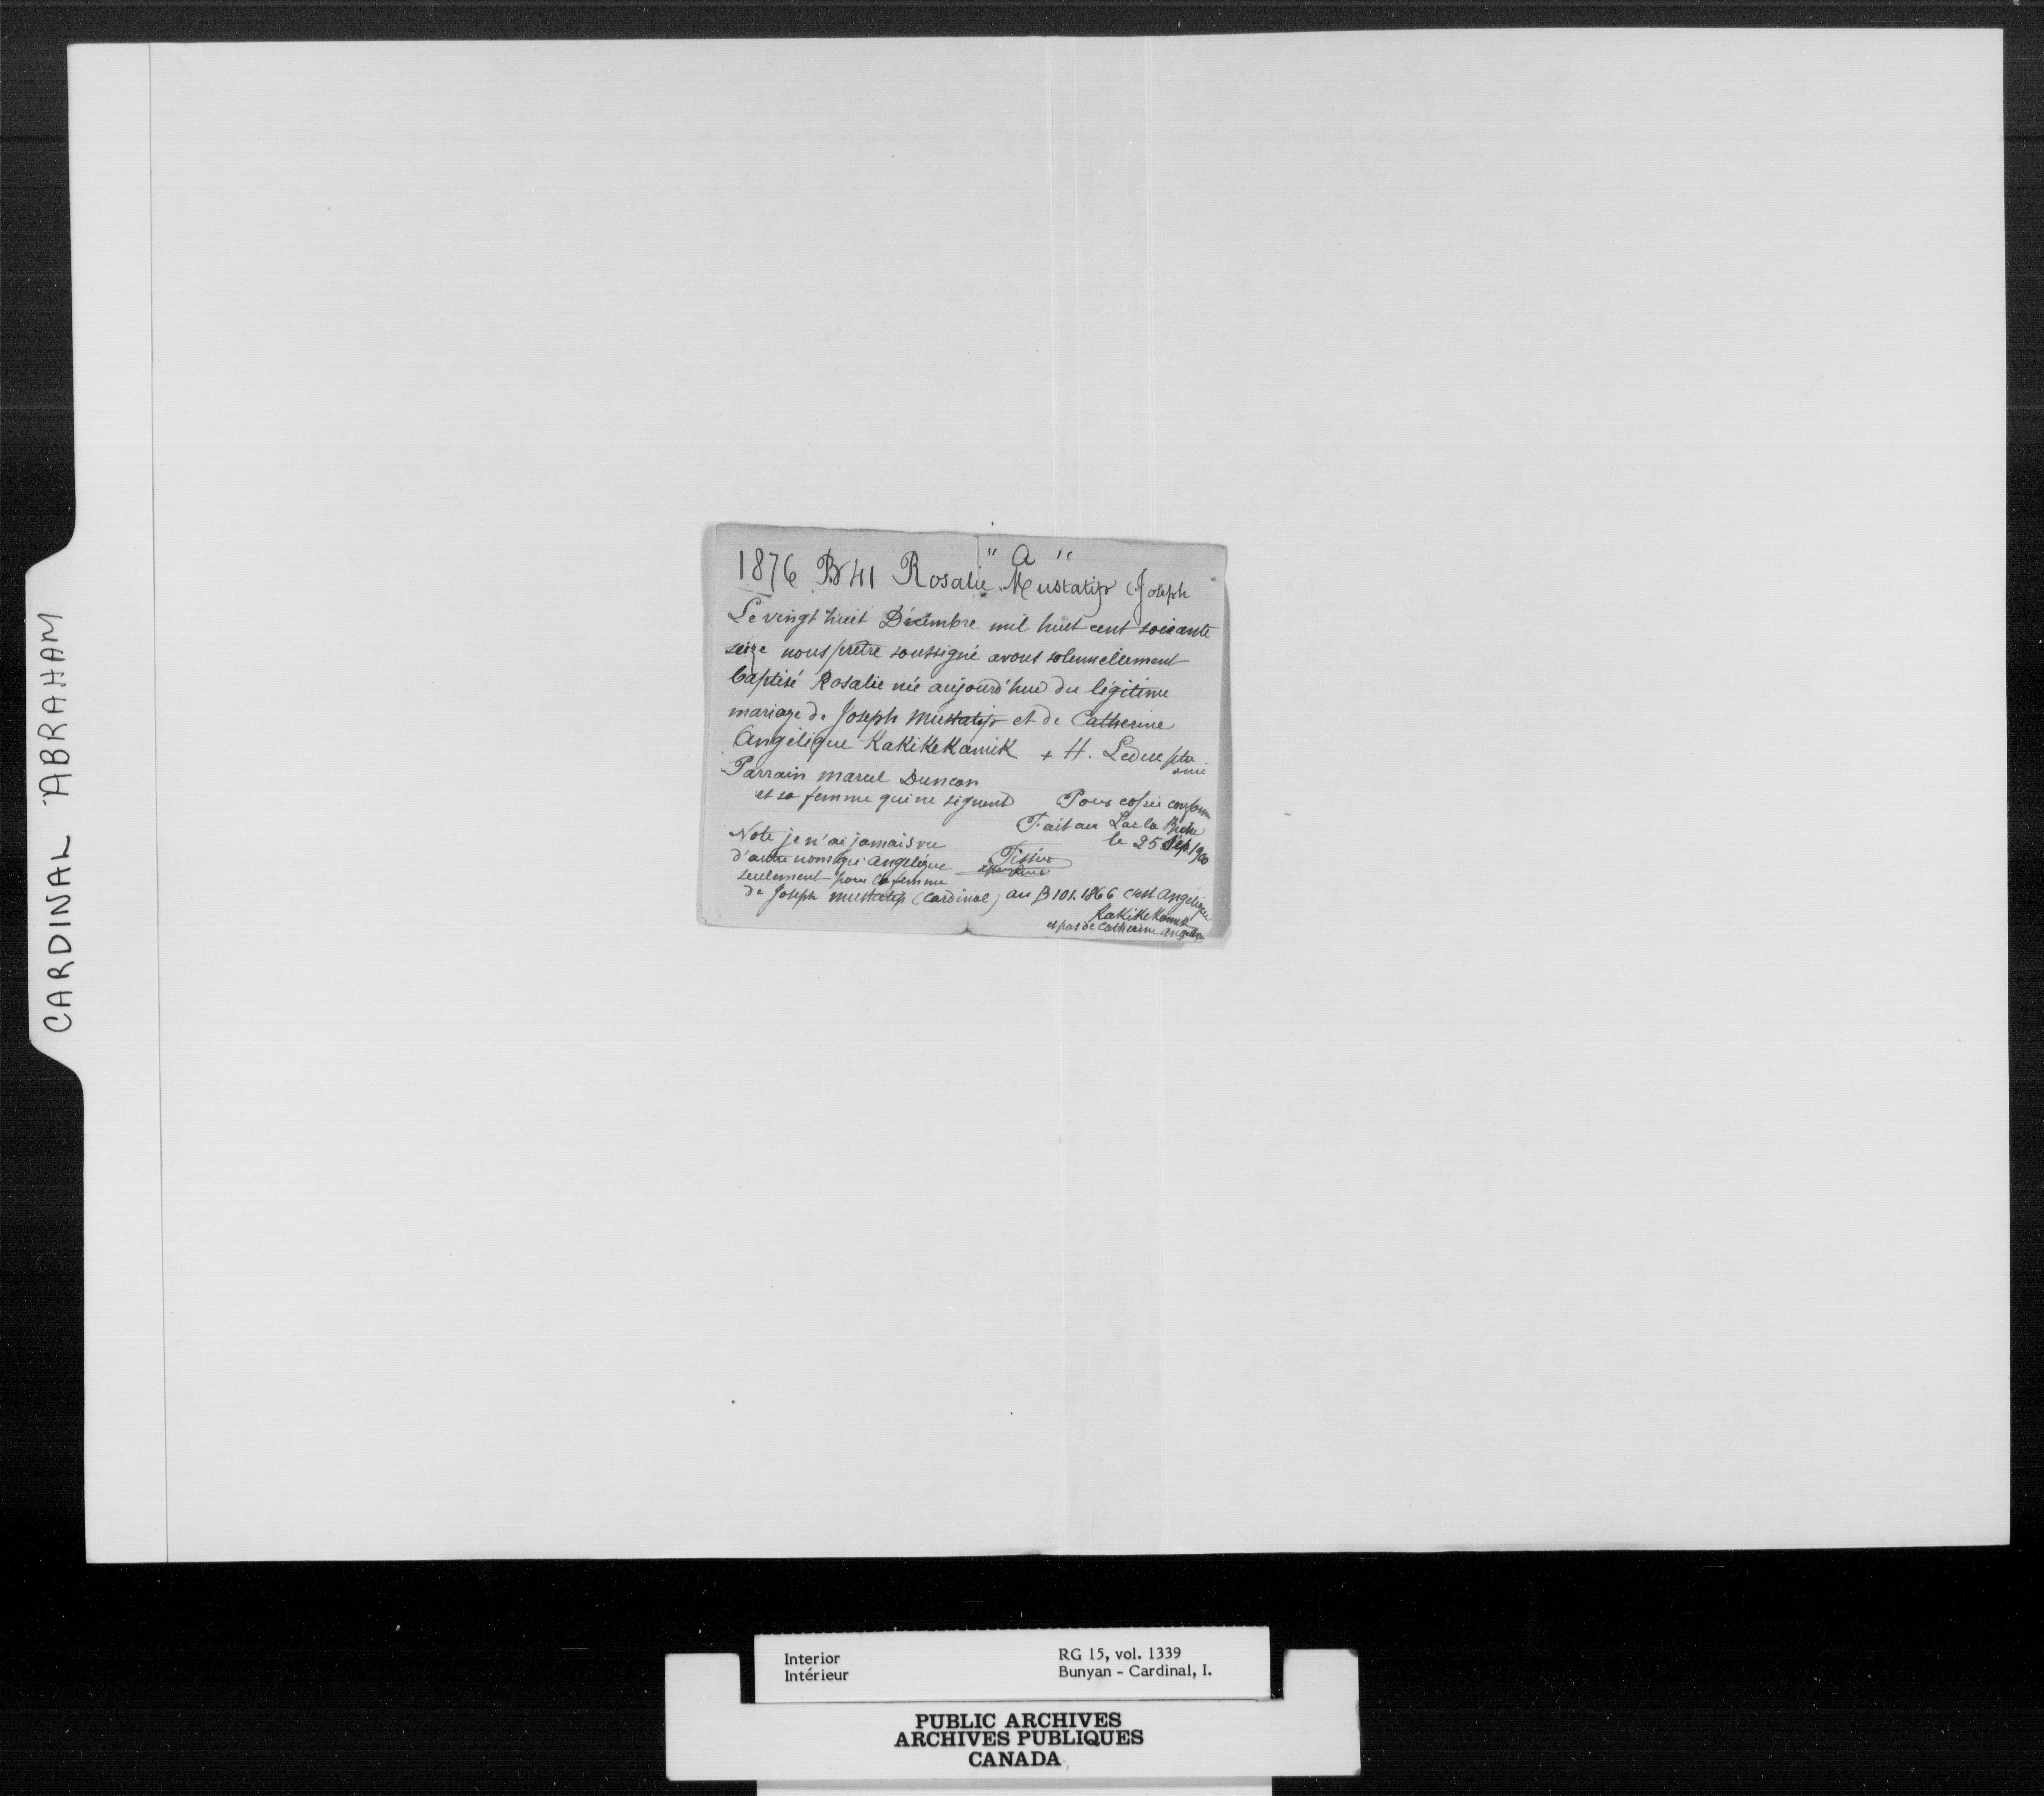 CARDINAL ABRAHAM
" A "
1876 B 41 Rosalie Mustatip (Joseph
Le vingt huit Décembre mil huit cent soixante
seize nous prêtre soussigné avons solennellement
baptisé Rosalie née aujourd'hui du légitime
mariage de Joseph Mustatip et de Catherine
Angélique Kakikekamik + H. Leduc ptr
omi
Parrain Marcel Duncan
et sa femme qui ne signent Pour copie conforme
Fait au Lac la Biche
le 25 Sep. 1900
Note je n'ai jamais vu
d'autre nom que Angélique Tissier
seulement pour la femme
de Joseph Mustatip (Cardinal) au B 101. 1866 c'est Angélique
Kakikekamik
et pas de Catherine Angélique
Interior RG 15, vol. 1339
Intérieur Bunyan - Cardinal, I.
PUBLIC ARCHIVES
ARCHIVES PUBLIQUES
CANADA